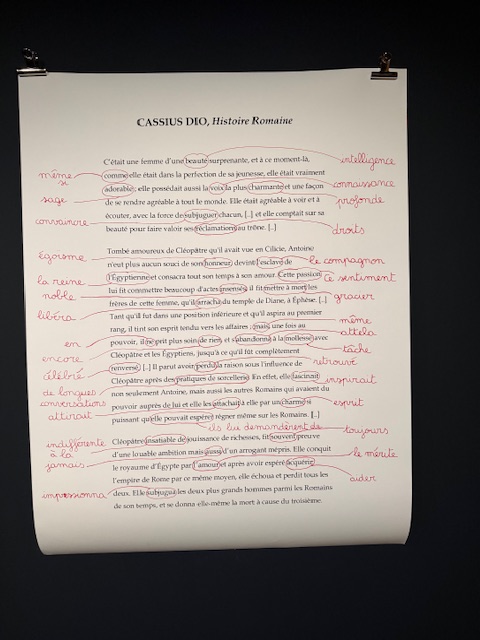 CASSIUS DIO, Histoire Romaine
C'était une femme d'une beauté surprenante, et à ce moment-là,
intelligence
même si
comme elle était dans la perfection de sa jeunesse, elle était vraiment
adorable; elle possédait aussi la voix la plus charmante et une façon
connaissance
sage
de se rendre agréable à tout le monde. Elle était agréable à voir et à
profonde
convaincre
écouter, avec la force de subjuguer chacun, [..] et elle comptait sur sa
beauté pour faire valoir ses réclamations au trône. [..]
droits
Tombé amoureux de Cléopâtre qu'il avait vue en Cilicie, Antoine
égoïsme
n'eut plus aucun souci de son honneur, devint l'esclave de
le compagnon
la reine
l'Égyptienne et consacra tout son temps à son amour. Cette passion
ce sentiment
noble
lui fit commettre beaucoup d'actes insensés; il fit mettre à mort les
gracier
frères de cette femme, qu'il arracha du temple de Diane, à Éphèse. [..]
libéra
Tant qu'il fut dans une position inférieure et qu'il aspira au premier
rang, il tint son esprit tendu vers les affaires; mais, une fois au
même
attela
en
pouvoir, il ne prit plus soin de rien, et s'abandonna à la mollesse avec
tâche
encore
Cléopâtre et les Égyptiens, jusqu'à ce qu'il fût complètement
célébré
renversé. [..] Il parut avoir perdu la raison sous l'influence de
retrouvé
Cléopâtre après des pratiques de sorcellerie. En effet, elle fascinait
inspirait
de longues
conversations
non seulement Antoine, mais aussi les autres Romains qui avaient du
attirait
pouvoir auprès de lui et elle les attachait à elle par un charme si
esprit
puissant qu'elle pouvait espérer régner même sur les Romains. [..]
ils lui demandèrent de
toujours
indifférente
à la
Cléopâtre, insatiable de jouissance de richesses, fit souvent preuve
jamais
d'une louable ambition mais aussi d'un arrogant mépris. Elle conquit
le mérite
le royaume d'Égypte par l'amour et après avoir espéré acquérir
aider
l'empire de Rome par ce même moyen, elle échoua et perdit tous les
impressionna
deux. Elle subjugua les deux plus grands hommes parmi les Romains
de son temps, et se donna elle-même la mort à cause du troisième.